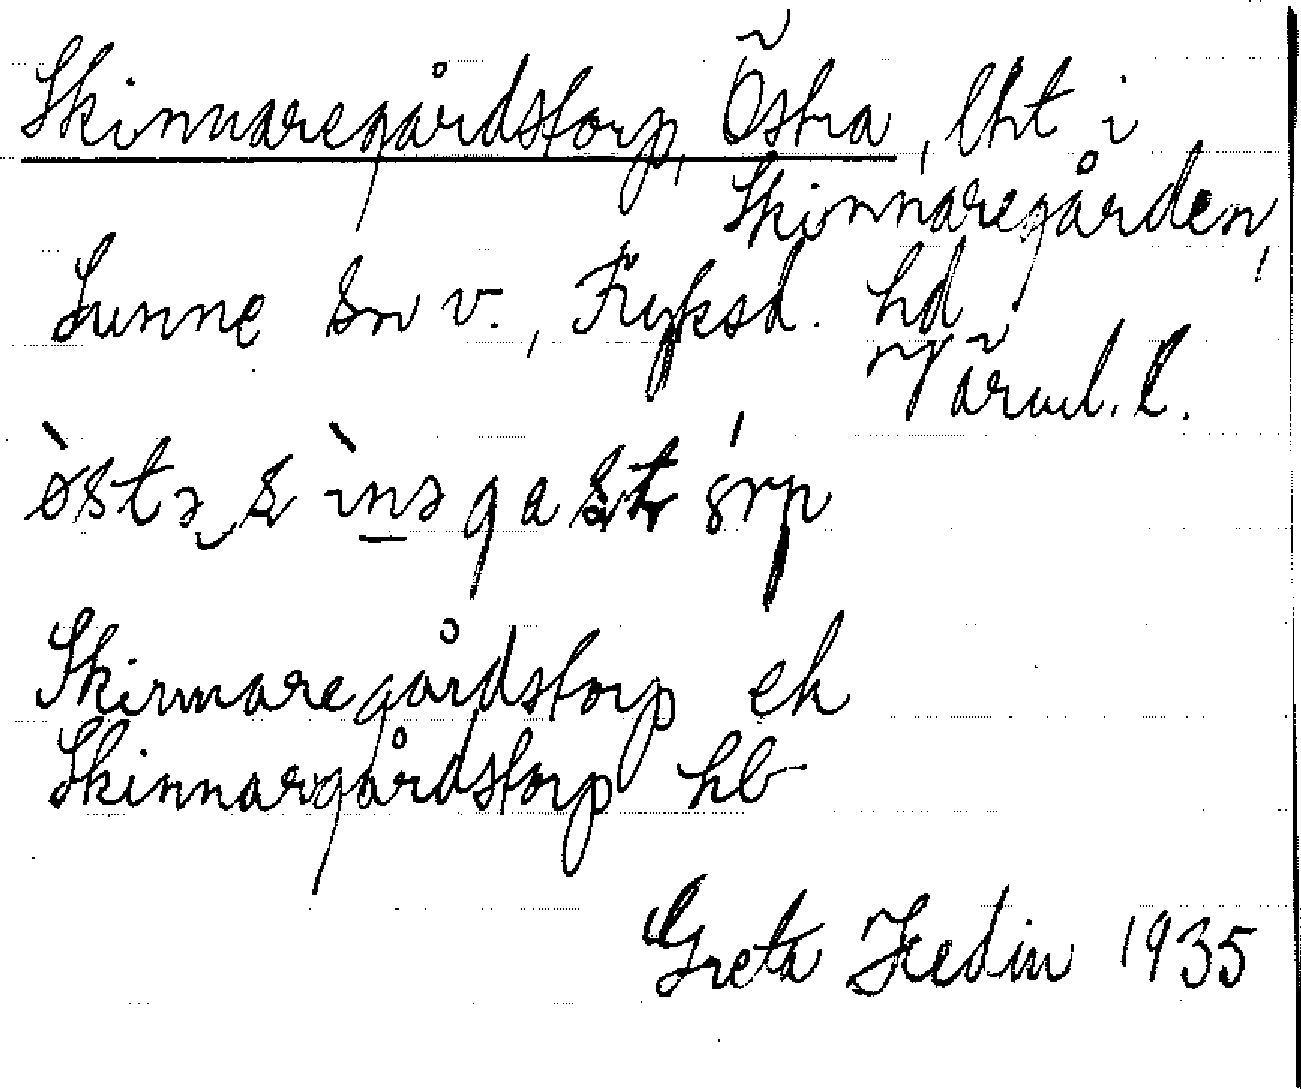 Skinnaregårdstorp, Östra, lht i
Skinnaregården,
Sunne sn v., Fryksd. hd
Värml. l.
Skinnaregårdstorp ek
Skinnargårdstorp hb
Greta Hedin 1935